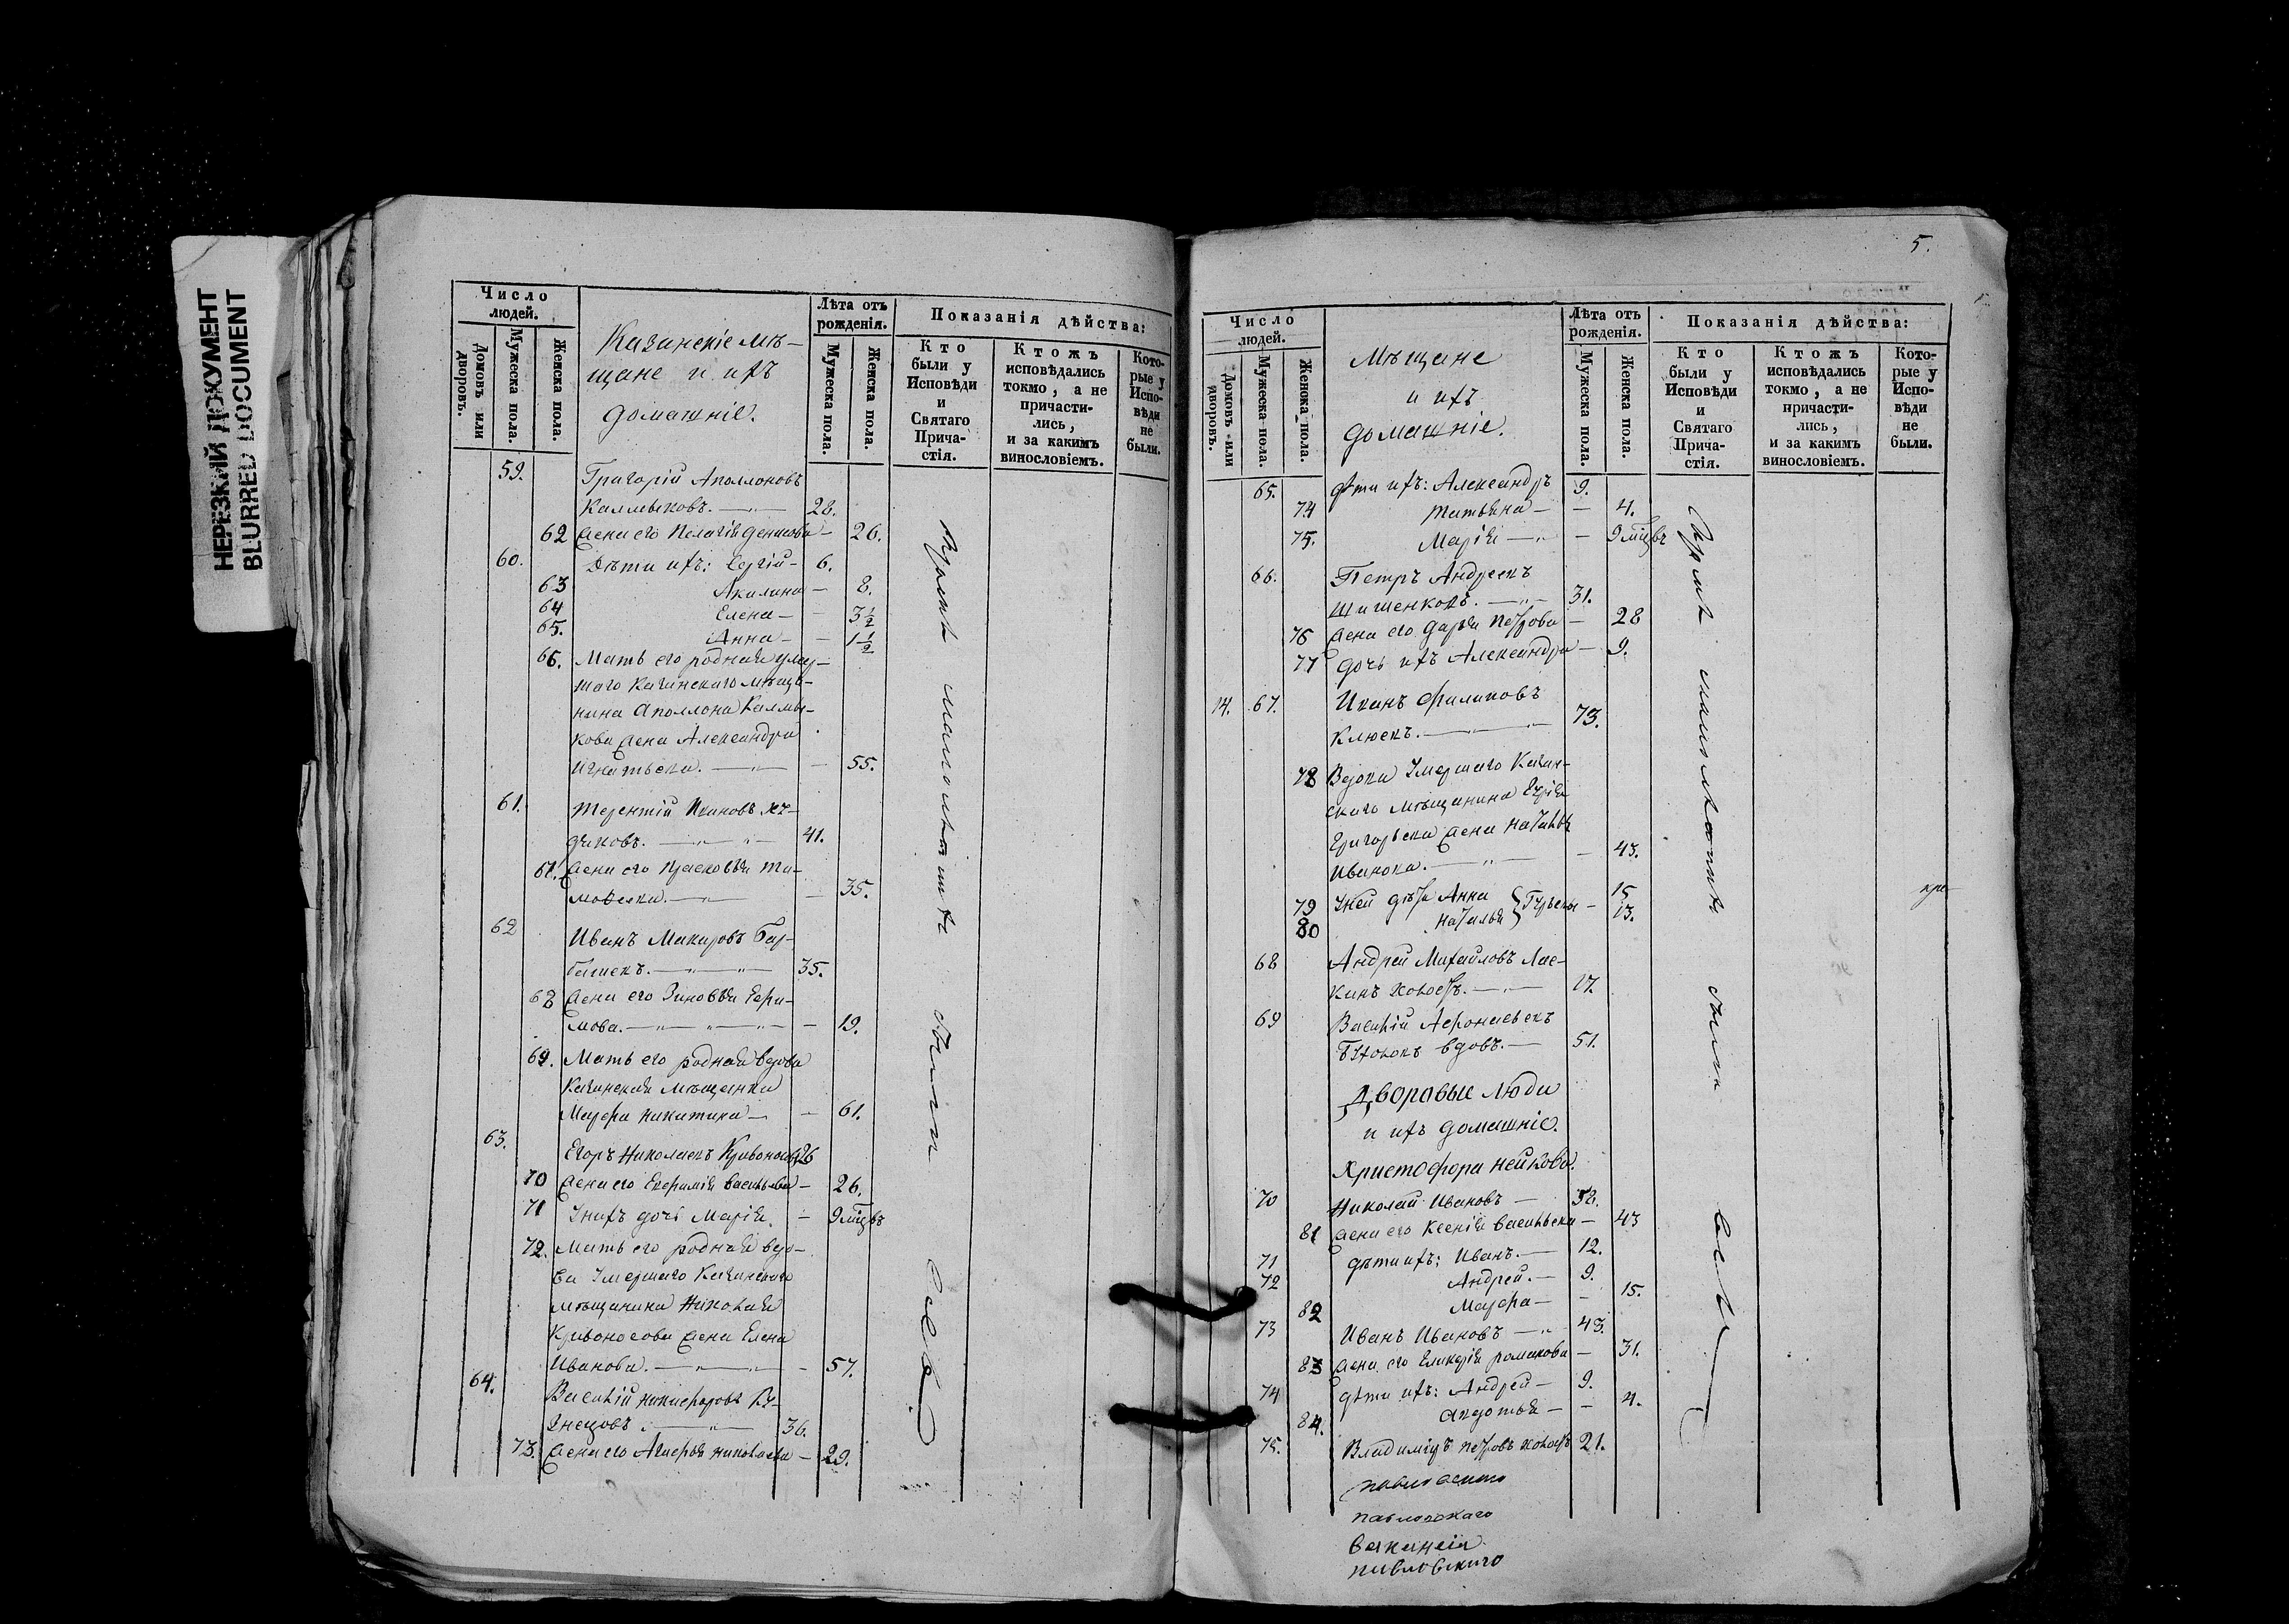 НЕРЕЗКИЙ ДОКУМЕНТ
BLURRED DOCUMENT
Число людей.
Домовъ или дворовъ.
Мужеска пола.
Женска пола.
Казинскіе мѣ-
щане и ихъ
домашніе.
Лѣта отъ рожденія.
Мужеска пола.
Женска пола.
Показанія дѣйства:
Кто были у Исповѣди и Святаго Прича-стія.
Ктожъ исповѣдались токмо, а не причасти-лись, и за какимъ винословіемъ.
Кото-рые у Испо-вѣди не были.
59. Григорій Аполлоновъ
Калмыковъ. 28.
62 Жена его Пелагія Денисова 26.
60. Дѣти ихъ: Сергій 6.
63 Акилина 8.
64 Елена 3½
65. Анна 1½
66. Мать его родная умер-
шаго Казинскаго мѣща-
нина Аполлона Калмы-
кова жена Александра
Игнатьева. 55.
61. Терентій Ивановъ
41.
67. Жена его Прасковья
35.
62 Иванъ Макаровъ
35.
68 Жена его Зиновія Ефри-
мова. 19.
69. Мать его родная вдова
Казинская мѣщанка
Марфа Никитина 61.
63. Егоръ Николаевъ Кривоносовъ 26
70 Жена его Евфимія Васильева 26.
71 У нихъ дочь Марія. 9 мцвъ
72. Мать его родная вдо-
ва умершаго Казинскаго
мѣщанина Николая
Кривоносова жена Елена
Иванова. 57.
64. Василій Никифоровъ Ку-
знецовъ. 36.
73. Жена его Агафья Николаева 29.
малолѣтніе были все
5.
Число людей.
Домовъ или дворовъ.
Мужеска пола.
Женска пола.
Мѣщане
и ихъ
домашніе.
Лѣта отъ рожденія.
Мужеска пола.
Женска пола.
Показанія дѣйства:
Кто были у Исповѣди и Святаго Прича-стія.
Ктожъ исповѣдались токмо, а не причасти-лись, и за какимъ винословіемъ.
Кото-рые у Испо-вѣди не были.
65. дѣти ихъ: Александръ 9.
74 Татьяна 4.
75. Марія 9 мцвъ
66. Петръ Андреевъ
Шишенковъ. 31.
76 Жена его Дарья Петрова 28
77 Дочь ихъ Александра 9.
14. 67. Иванъ Филиповъ
Клюевъ. 73.
78 Вдова умершаго Казин-
скаго мѣщанина
Григорьева жена Наталья
Иванова. 43.
79 У ней дѣти Анна 15
80 Наталья 13.
68 Андрей Михайловъ Лас-
кинъ холостъ. 17.
69 Василій Афонасьевъ
вдовъ. 51.
Дворовые люди
и ихъ домашніе.
Христофора Нейкова.
70 Николай Ивановъ 38.
81 Жена его Ксенія Васильева 43
71 дѣти ихъ: Иванъ. 12.
72 Андрей. 9.
82 Марфа 15.
73 Иванъ Ивановъ 43.
83 Жена его Гликерія Романова 31.
74 дѣти ихъ: Андрей 9.
84. Авдотья 4.
75. Владиміръ Петровъ холостъ 21.
малолѣтніе были все
павловскаго
павловскаго